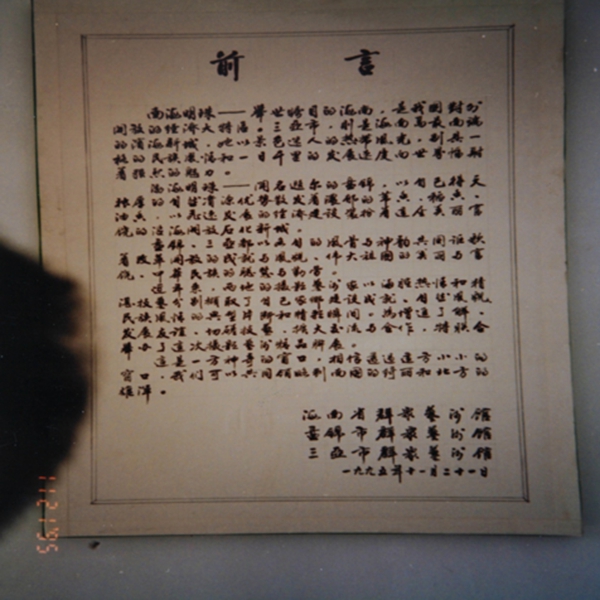 前言
南海明珠——举世瞩目的海南,是我国对外
开放的经济大特区。三亚市,则是海岛最南端
的滨海新城,她以景色迷人的热带风光,别具一
格的民族风情和一日千里的发展速度向世界焕射
着强烈的魅力。
渤海明珠——闻名遐尔的盘锦,以自己得天
独厚的自然资源优势散发着浓郁的苇香、稻香、
油香,以其迅速发展的经济建设装扮着这个美丽富
饶的沿海开放石化新城。
盘锦、三亚都以五色的风音与神韵共同谱歌
着改革开放的成就与风貌、伟大祖国的美丽与富
饶、中华民族的聪慧与勤劳。
这年来,两地的摄影艺术家以海般热情和精
湛技艺分别撷取了自己家乡建设成就、自然风貌、
民族风情的典型片断和精粹瞬间。为增进了解、
发展友谊、切磋技艺、扩大交流与合作,特联合
举办了这次摄影艺术精品联展。
这是一方神奇的窗口,相信通过这方小小的
窗口,我们可以共同领略到南国的绮丽和北方的
雄浑。
海南省群众艺术馆
盘锦市群众艺术馆
三亚市群众艺术馆
一九九五年十一月二十一日
11 21 '95